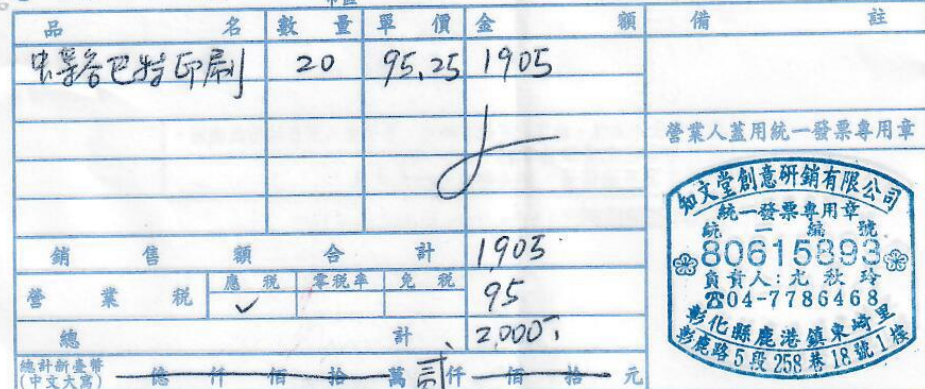 品 名 數 量 單 價 金 額 備 註
巴特印刷 20 95.25 1905
營業人蓋用統一發票專用章
銷 售 額 合 計 1905
營 業 稅 應 稅 ✓ 零稅率 免 稅 95
總 計 2,000
總計新臺幣
(中文大寫) 億 仟 佰 拾 萬 貳仟 佰 拾 元
知文堂創意研銷有限公司
統一發票專用章
統 一 編 號
80615893
負責人:尤秋玲
☎04-7786468
彰化縣鹿港鎮東崎里
彰鹿路5段258巷18號1樓